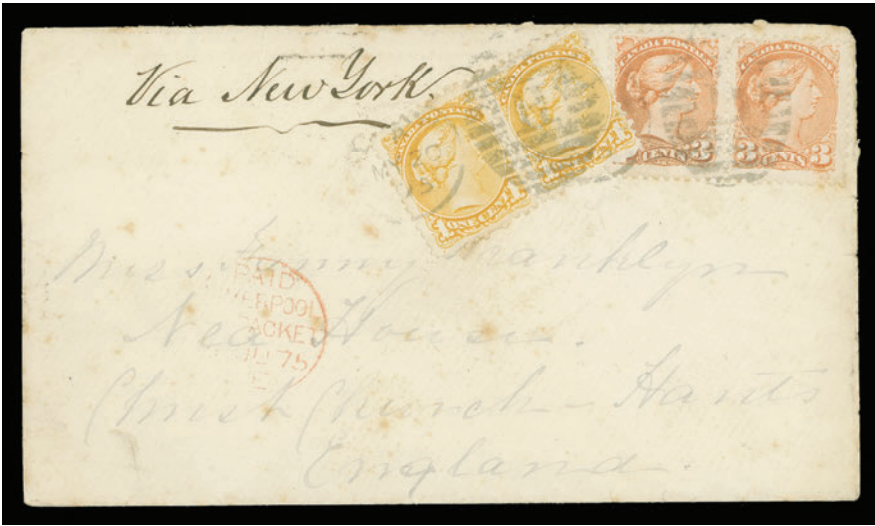 Via New York.
CANADA POSTAGE
ONE CENT
1 1
CANADA POSTAGE
1 1
CANADA POSTAGE
CENTS 3
CANADA POSTAGE
3 CENTS 3
PAID
LIVERPOOL
PACKET
75
Miss Fanny Franklyn
House.
Christ Church - Hants
England.